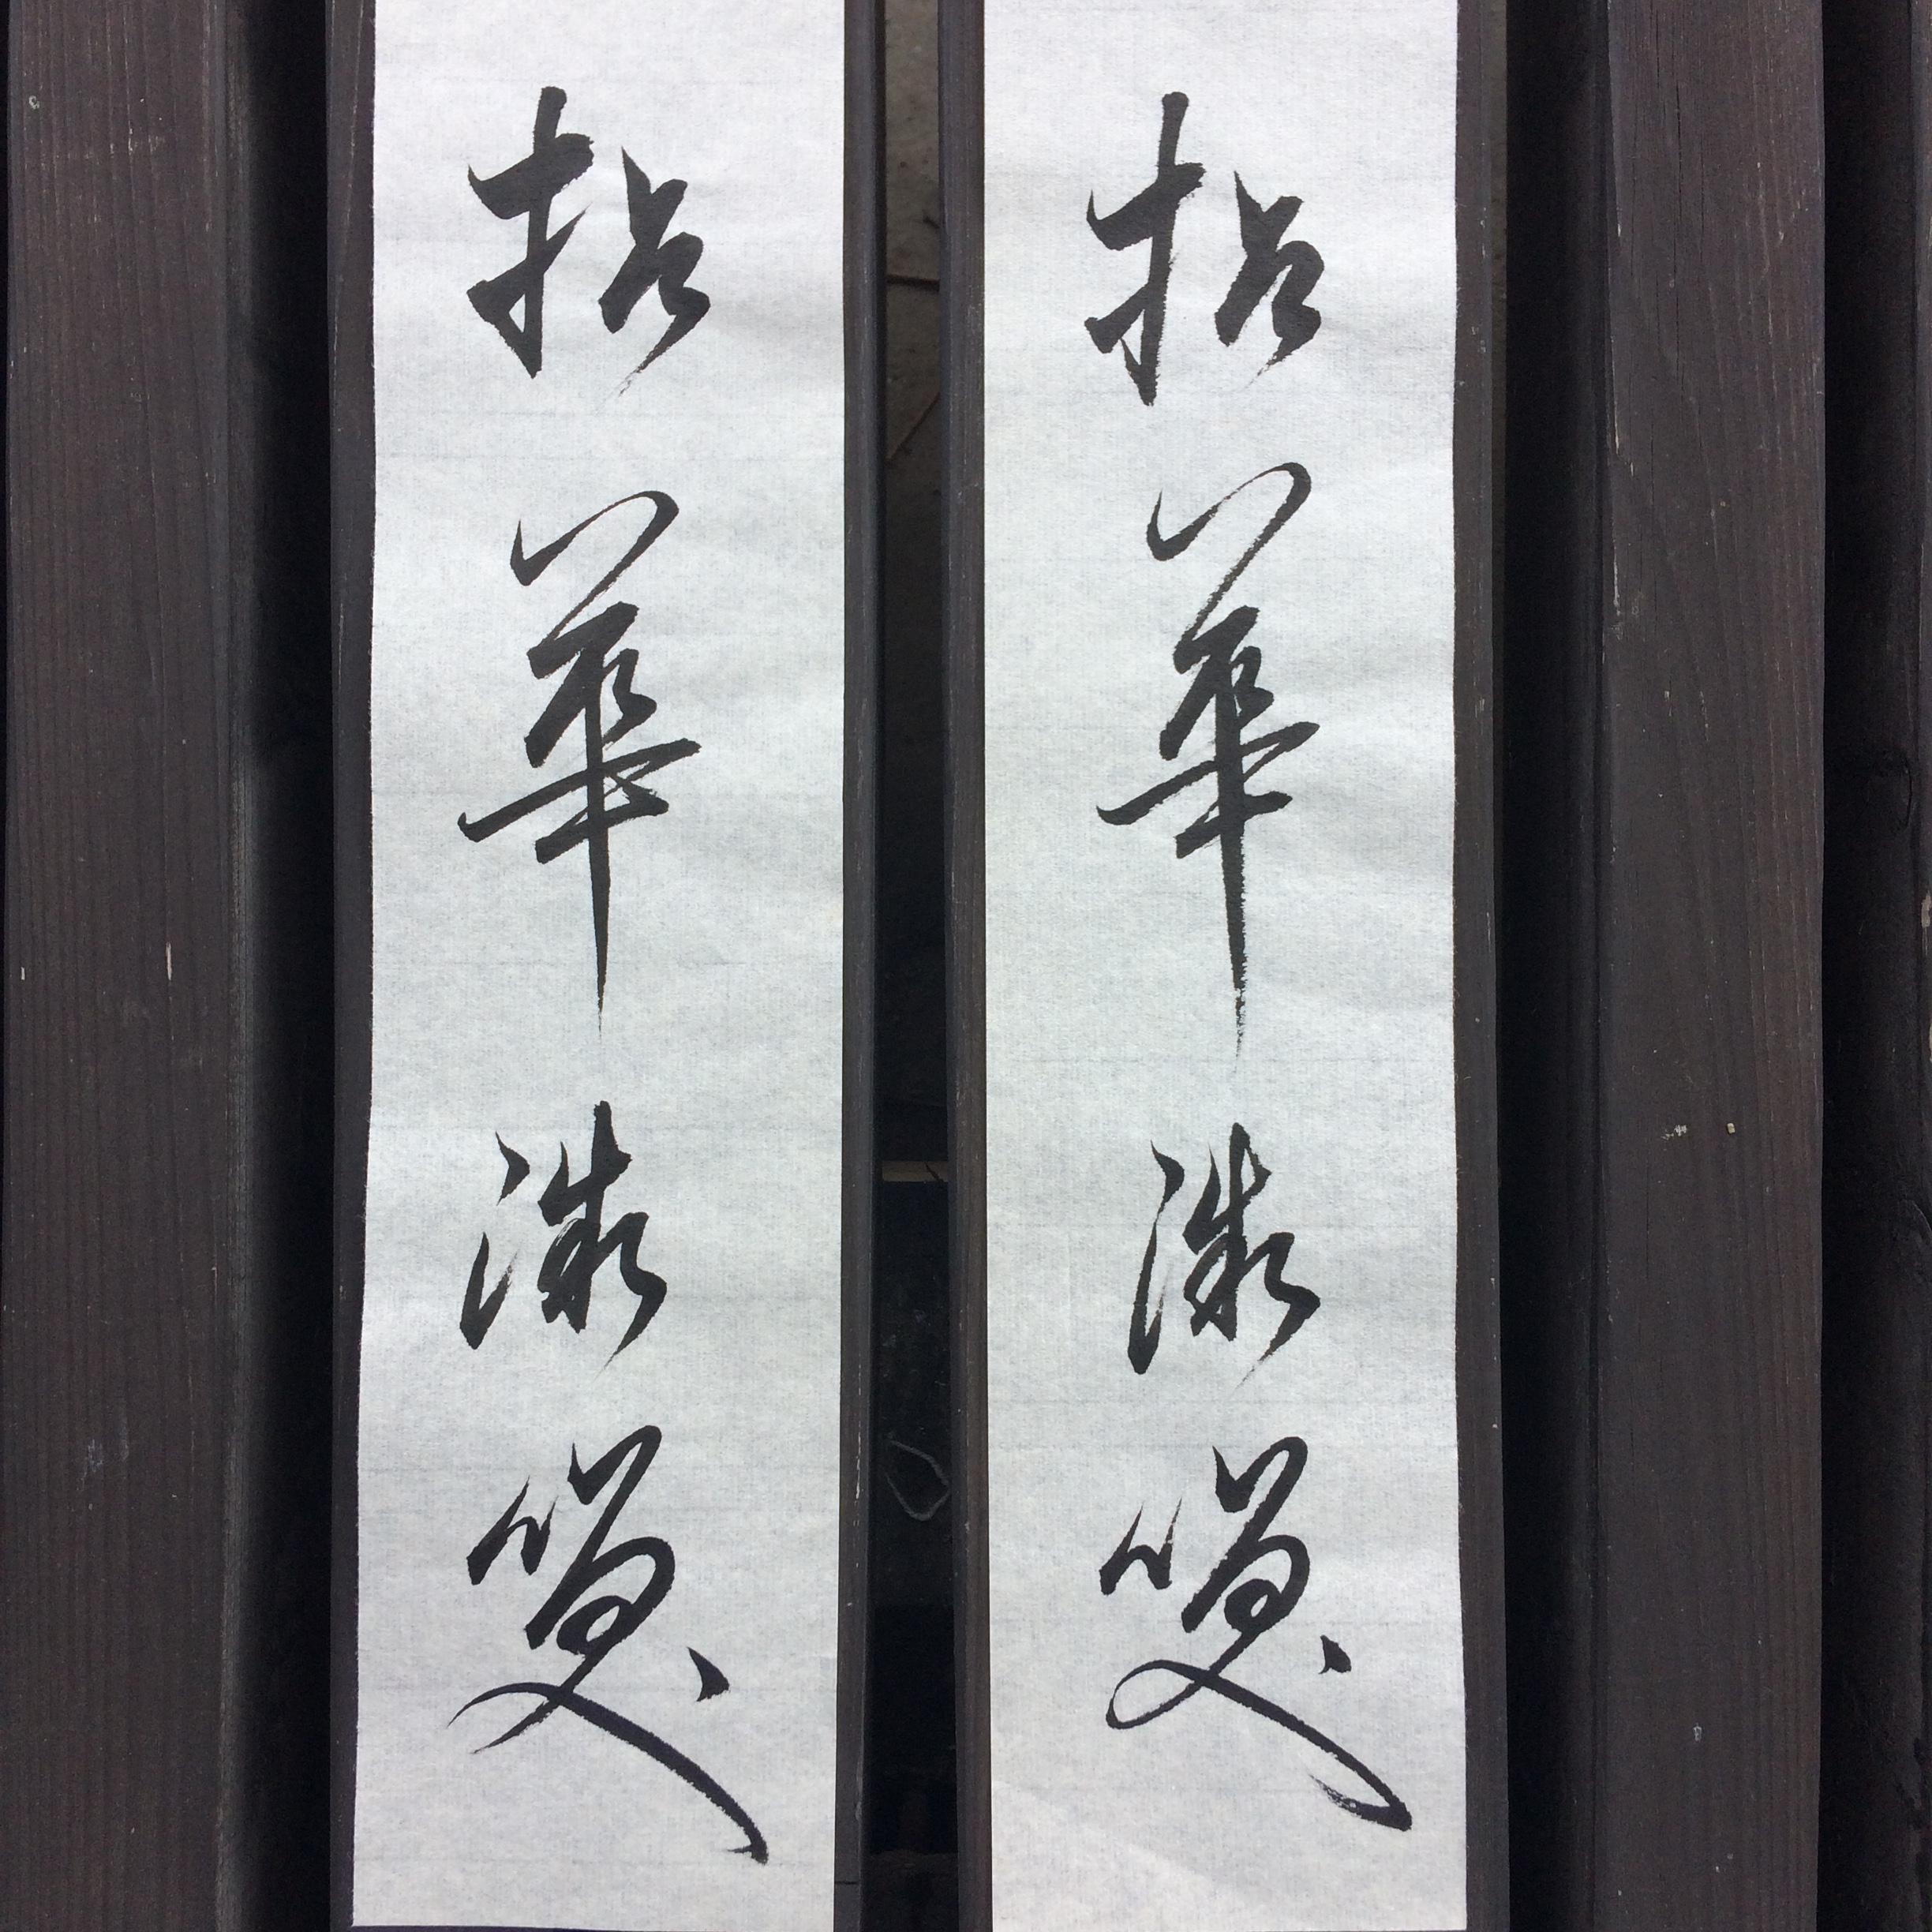 拈華微笑
拈華微笑